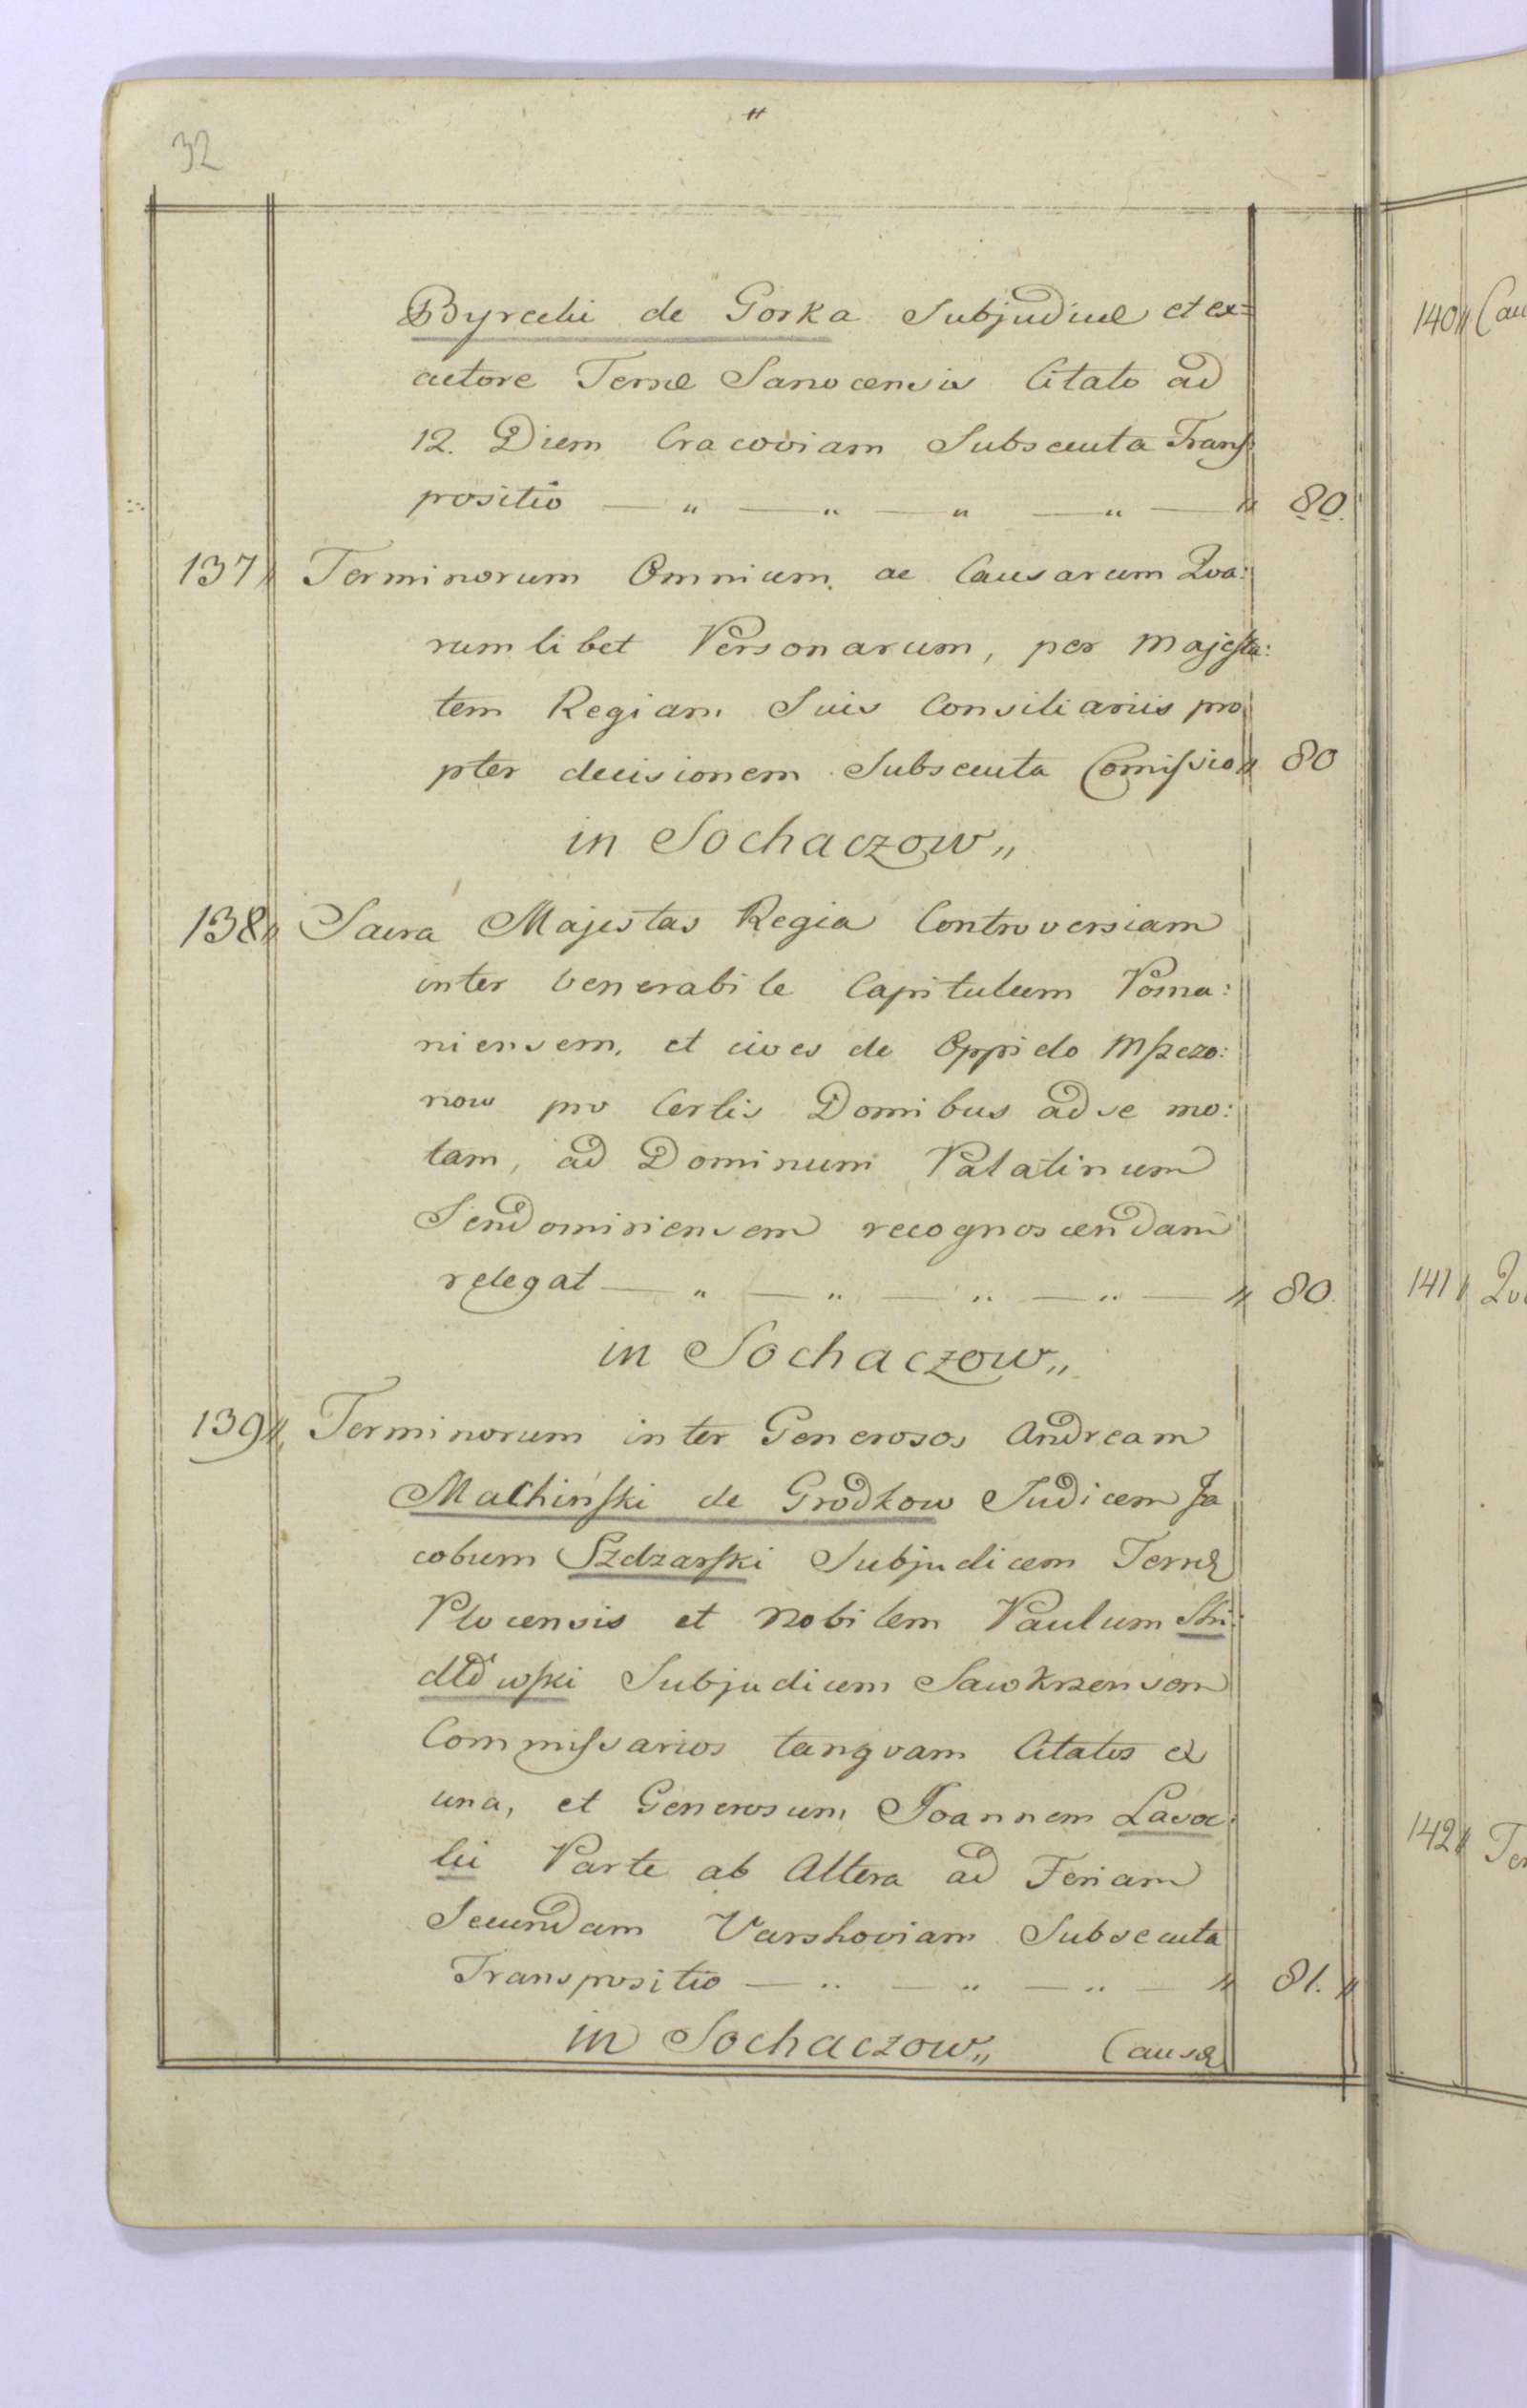 "
32
Byrcchi de Gorka Subjudice et ex=
actore Terræ Sanocensis Citato ad
12. Diem Cracoviam Subsecuta Trans:
positio — " — " — " — " — " 80.
137" Terminorum Omnium, ac Causarum Qva:
rumlibet Personarum, per Majesta:
tem Regiam Suis Consiliariis pro
pter decisionem Subsecuta Comissio" 80
in Sochaczow"
138" Sacra Majestas Regia Controversiam
inter Venerabile Capitulum Posna:
niensem, et cives de Oppido Mszczo:
now pro Certis Domibus ad se mo:
tam, ad Dominum Palatinum
Sendomiriensem recognoscendam
relegat — " — " — " — " — " 80.
in Sochaczow"
139" Terminorum inter Generosos Andream
Malchinski de Grodkow Judicem Ja
cobum Szdzarski Subjudicem Terræ
Plocensis et Nobilem Paulum
Subjudicem Sawkrzensem
Commissarios tanqvam Citatos ex
una, et Generosum Joannem
Parte ab Altera ad Feriam
Secundam Varshoviam Subsecuta
Transpositio — " — " — " — " 81."
in Sochaczow" Causæ
140" Cau
141" Qu
142" Ter